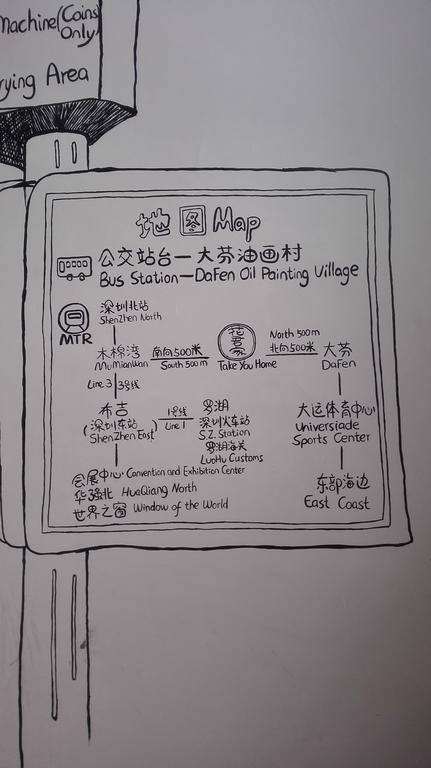 Machine(Coins Only)
rying Area
地图 Map
公交站台—大芬油画村
Bus Station—DaFen Oil Painting Village
MTR
深圳北站
ShenZhen North
木棉湾
MuMianWan
南向500米
South 500m
花君家
Take You Home
North 500m
北向500米
大芬
DaFen
Line 3 3号线
布吉
(深圳东站)
ShenZhen East
1号线
Line 1
罗湖
深圳火车站
S.Z. Station
罗湖海关
LuoHu Customs
大运体育中心
Universiade
Sports Center
会展中心 Convention and Exhibition Center
华强北 HuaQiang North
世界之窗 Window of the World
东部海边
East Coast